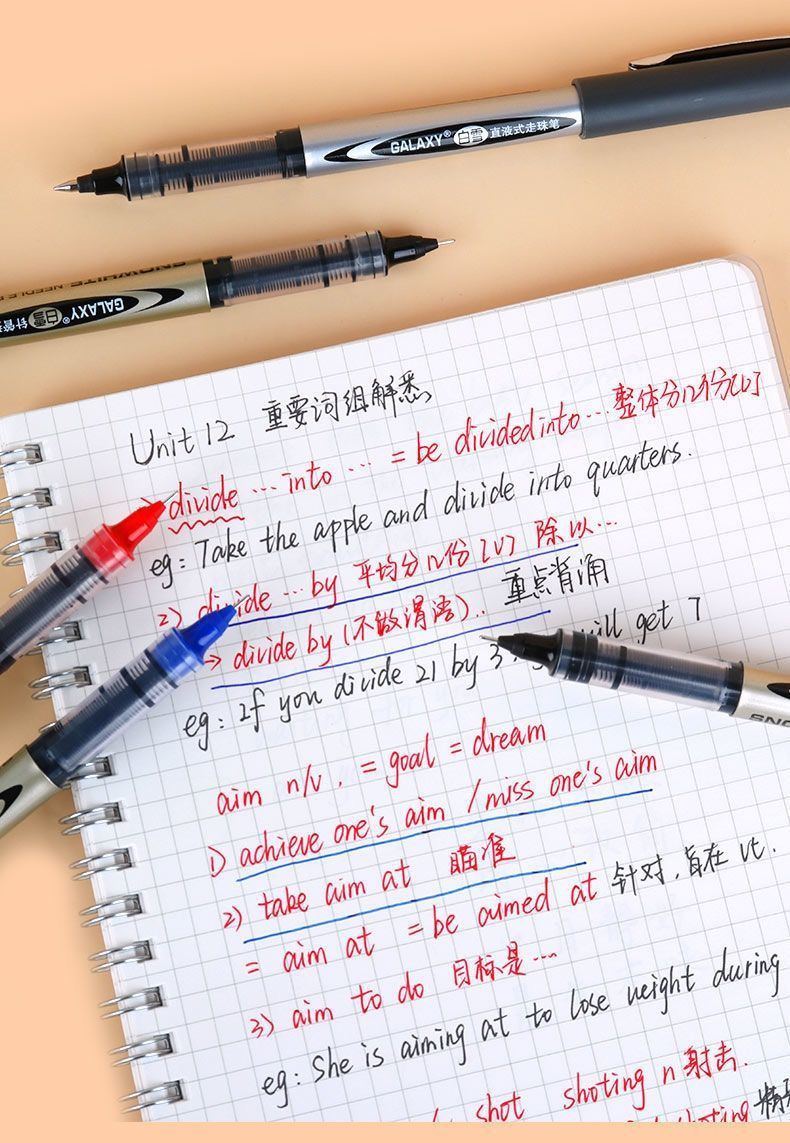 GALAXY® 白雪 直液式走珠笔
SNOWHITE NEEDLE
GALAXY 白雪 针管
Unit 12 重要词组解悉
divide … into … = be divided into … 整体分以份[b]
eg: Take the apple and divide into quarters.
2) divide … by 平均分以份[V] 除以…
→ divide by (不做谓语).. 重点背涌
eg: If you divide 21 by 3, will get 7
aim n/v. = goal = dream
1) achieve one's aim / miss one's aim
2) take aim at 瞄准
= aim at = be aimed at 针对, 旨在 vt.
3) aim to do 目标是…
eg: She is aiming at to lose weight during
shot shoting n 射击.
shoting
SNO